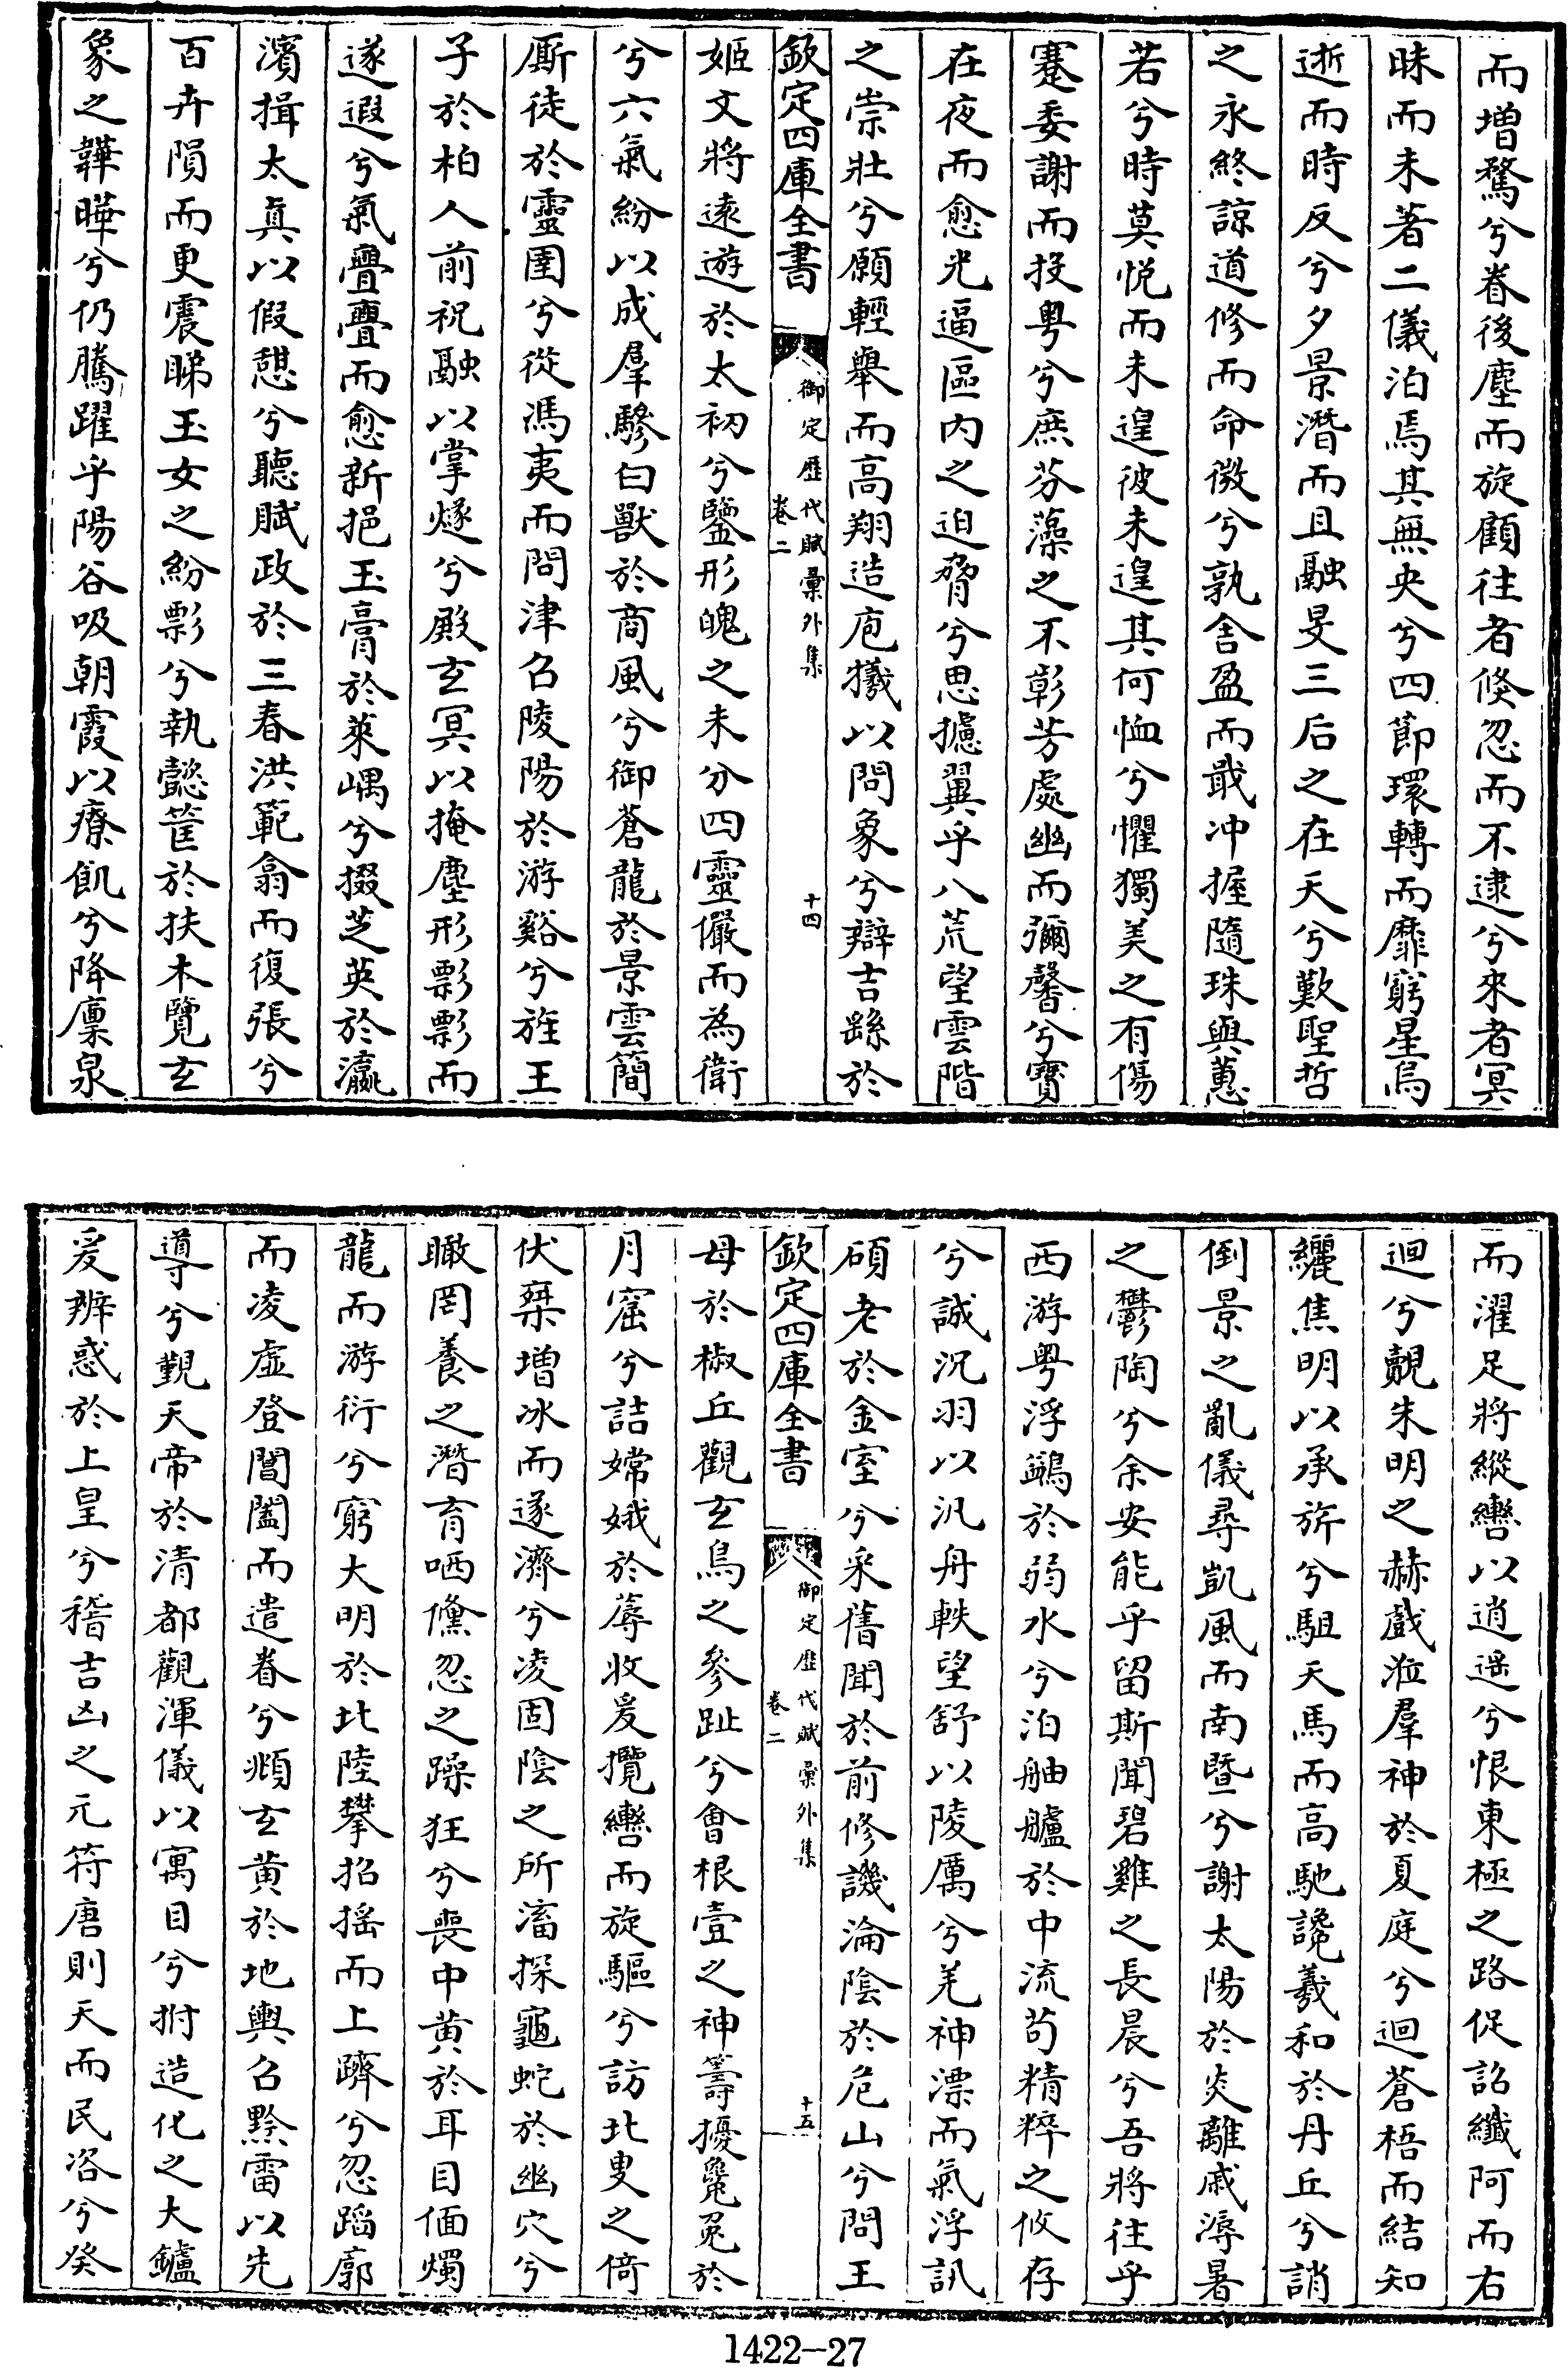 而增騖兮眷後塵而旋顧往者倏忽而不逮兮來者冥
昧而未著二儀泊焉其無央兮四節環轉而靡窮星烏
逝而時反兮夕景潛而且融旻三后之在天兮歎聖哲
之永終諒道修而命微兮孰舍盈而戢冲握隨珠與蕙
若兮時莫悦而未遑彼未遑其何恤兮懼獨美之有傷
蹇委謝而投粤兮庶芬藻之不彰芳處幽而彌馨兮寶
在夜而愈光逼區内之迫脅兮思攄翼乎八荒望雲階
之崇壯兮願輕舉而高翔造庖犧以問象兮辯吉繇於
欽定四庫全書
御定歷代賦彙外集
卷二
十四
姬文將遠遊於太初兮鑒形魄之未分四靈儼而為衛
兮六氣紛以成羣驂白獸於商風兮御蒼龍於景雲簡
厮徒於靈圉兮從馮夷而問津召陵陽於游谿兮旌王
子於柏人前祝融以掌燧兮殿玄冥以掩塵形影影而
遂遐兮氣亹亹而愈新挹玉膏於萊嵎兮掇芝英於瀛
濱揖太真以假憩兮聽賦政於三春洪範翕而復張兮
百卉隕而更震睇玉女之紛影兮執懿筐於扶木覽玄
象之韡曄兮仍騰躍乎陽谷吸朝霞以療飢兮降廪泉
而濯足將縱轡以逍遥兮恨東極之路促詔纖阿而右
迴兮覿朱明之赫戲涖羣神於夏庭兮迴蒼梧而結知
纚焦明以承旂兮駔天馬而高馳讒羲和於丹丘兮誚
倒景之亂儀尋凱風而南暨兮謝太陽於炎離戚溽暑
之鬱陶兮余安能乎留斯聞碧雞之長晨兮吾將往乎
西游粤浮鷁於弱水兮泊舳艫於中流苟精粹之攸存
兮誠沉羽以汎舟軼望舒以陵厲兮羌神漂而氣浮訊
碩老於金室兮采舊聞於前修譏淪陰於危山兮問王
欽定四庫全書
御定歷代賦彙外集
卷二
十五
母於椒丘觀玄烏之參趾兮會根壹之神籌擾毚兔於
月窟兮詰嫦娥於蓐收爰攬轡而旋驅兮訪北叟之倚
伏棊增冰而遂濟兮凌固陰之所滀探龜蛇於幽穴兮
瞰罔養之潛育哂儻忽之躁狂兮喪中黄於耳目偭燭
龍而游衍兮窮大明於北陸攀招摇而上躋兮忽蹈廓
而凌虚登閶闔而遣眷兮頫玄黄於地輿召黔雷以先
導兮覲天帝於清都觀渾儀以寓目兮拊造化之大鑪
爰辨惑於上皇兮稽吉凶之元符唐則天而民咨兮癸
1422-27